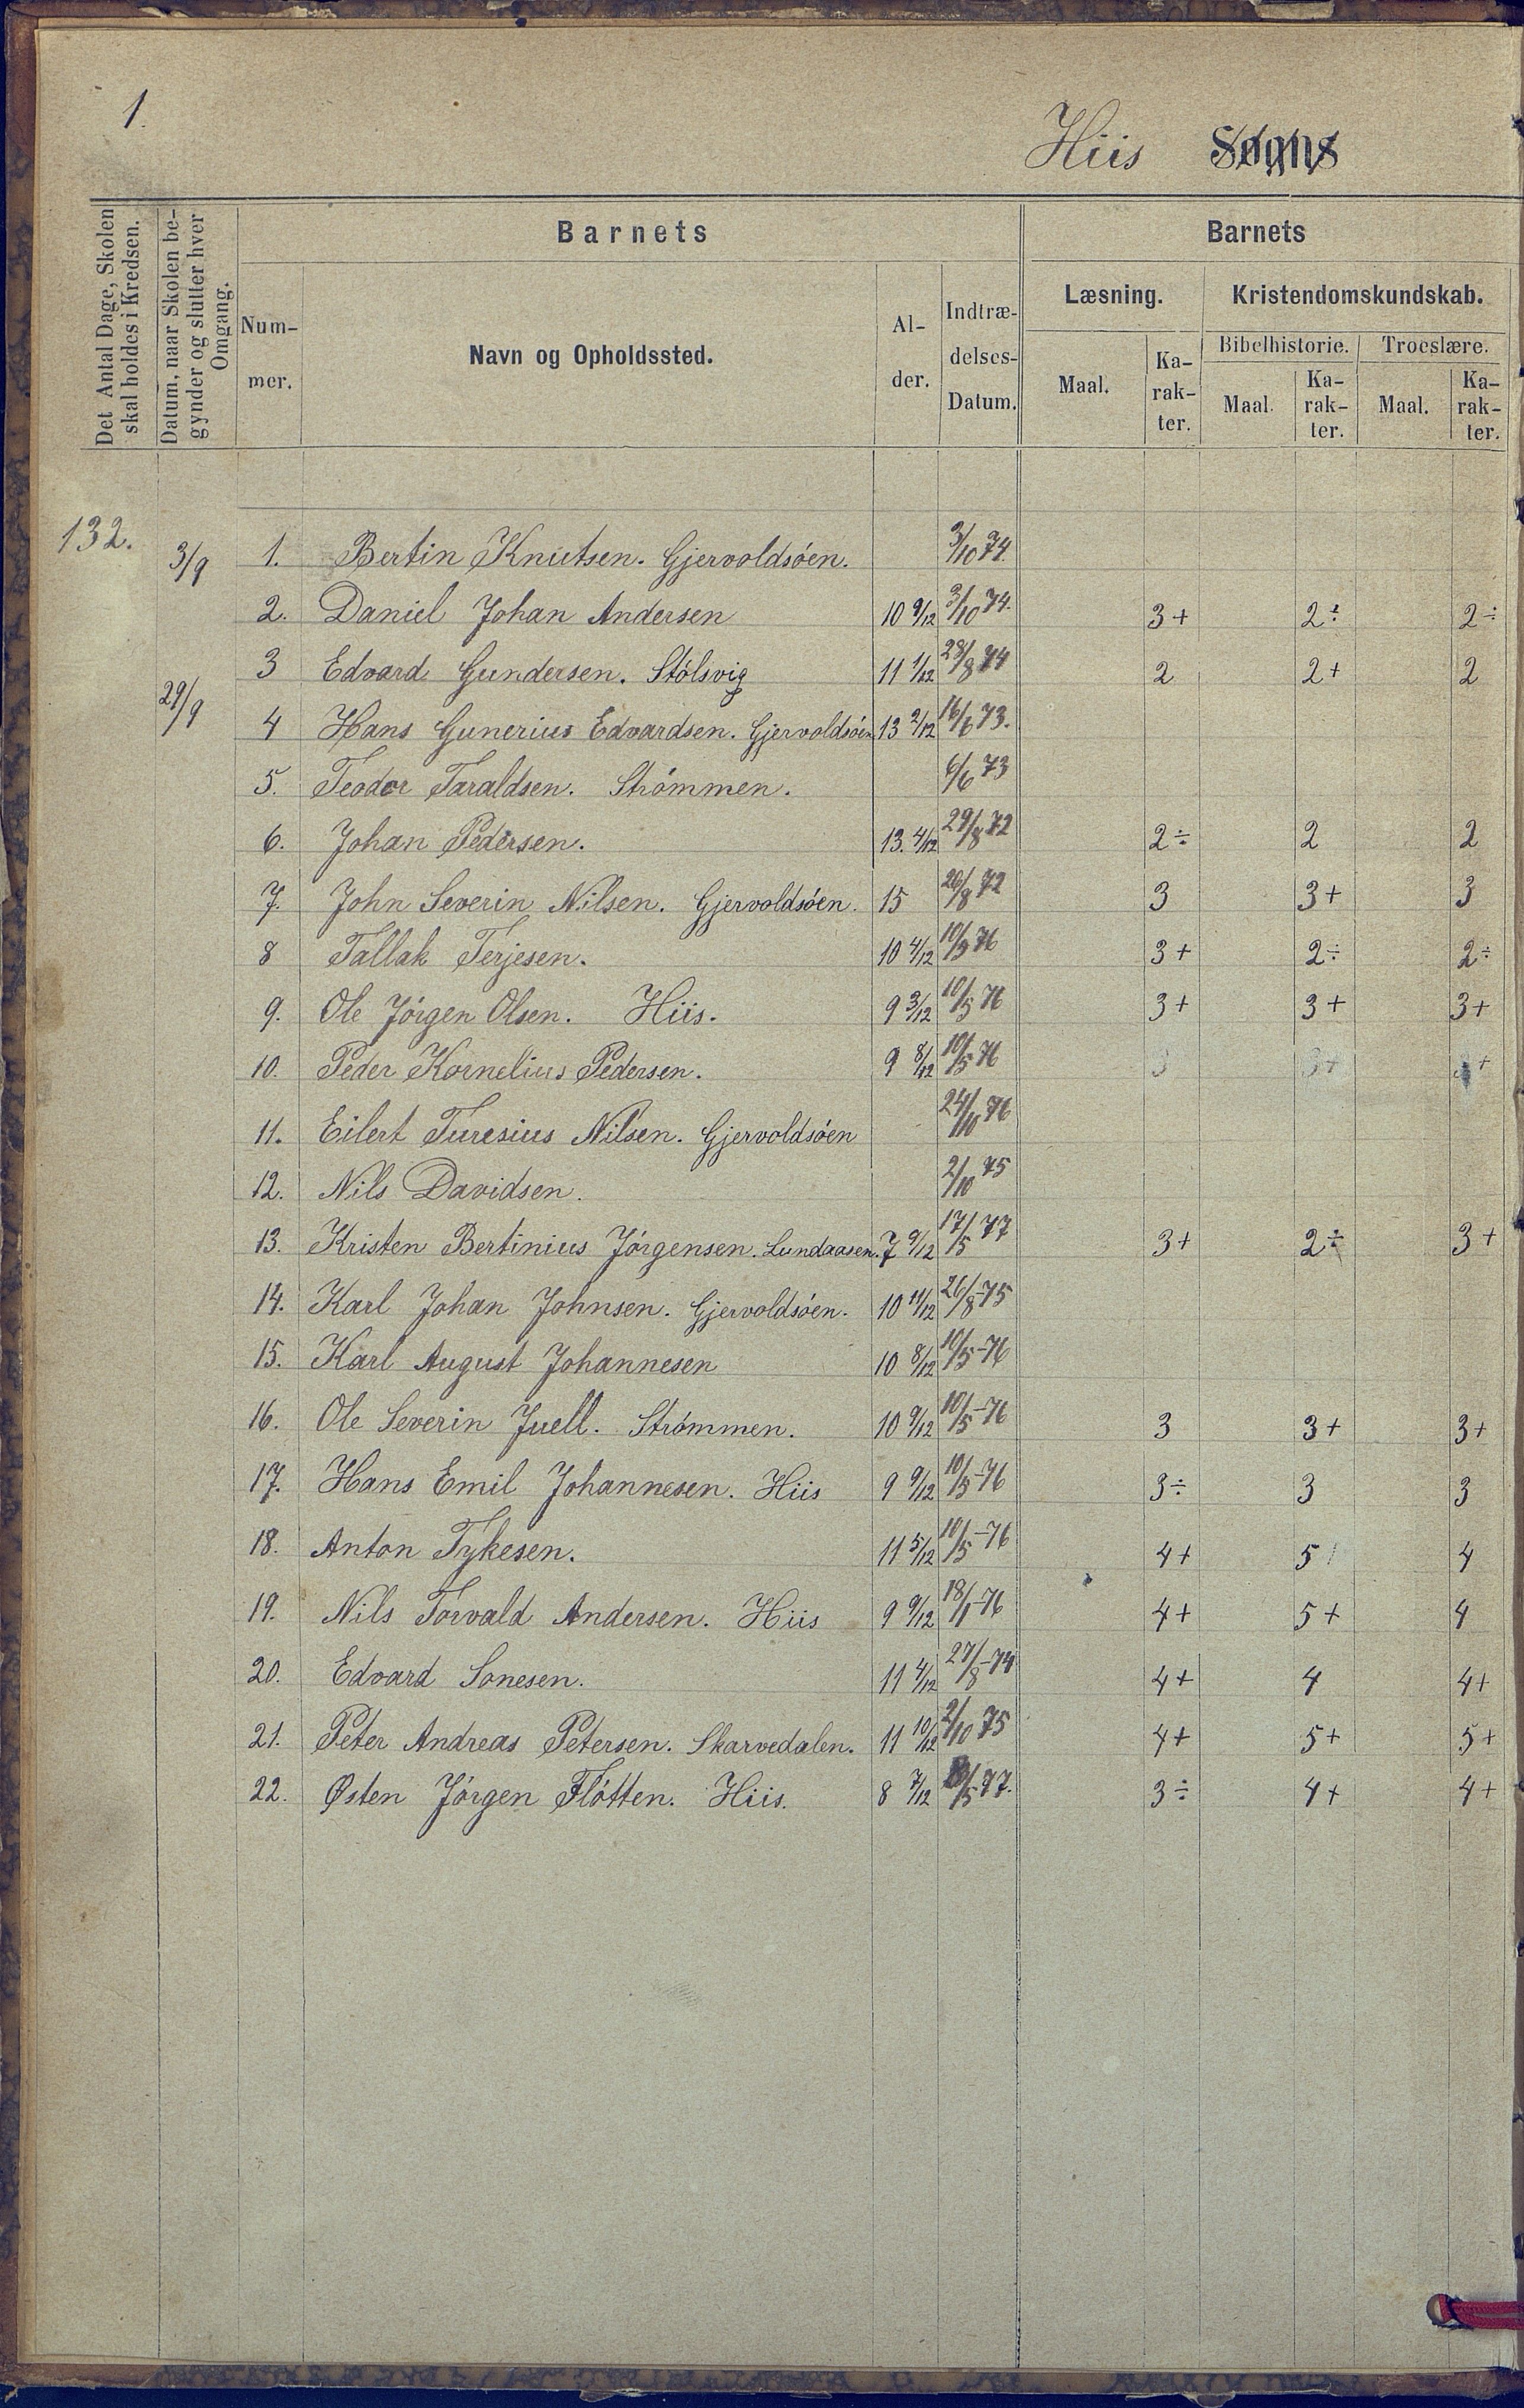 1.
Hiis Sogns
Det Antal Dage, Skolen skal holdes i Kredsen.
Datum, naar Skolen begynder og slutter hver Omgang.
Barnets
Barnets
Nummer.
Navn og Opholdssted.
Alder.
Indtrædelses-Datum.
Læsning.
Kristendomskundskab.
Bibelhistorie.
Troeslære.
Maal.
Karakter.
Maal.
Karakter.
Maal.
Karakter.
132.
3/9
1. Bertin Knutsen. Gjervoldsöen. 3/10 74.
2. Daniel Johan Andersen 10 9/12 3/10 74. 3+ 2÷ 2÷
3 Edvard Gundersen. Stölsvig 11 1/12 28/8 74 2 2+ 2
29/9
4 Hans Gunerius Edvardsen. Gjervoldsöen 13 2/12 16/6 73.
5. Teodor Taraldsen. Strömmen. 6/6 73
6. Johan Pedersen. 13. 4/12 29/8 72 2÷ 2 2
7. John Severin Nilsen. Gjervoldsöen. 15 20/8 72 3 3+ 3
8 Tallak Terjesen. 10 4/12 10/5 76 3+ 2÷ 2÷
9. Ole Jörgen Olsen. Hiis. 9 3/12 10/5 76 3+ 3+ 3+
10. Peder Kornelius Pedersen. 9 8/12 10/5 76 3 3+ 3+
11. Eilert Turesius Nilsen. Gjervoldsöen 24/10 76
12. Nils Davidsen. 2/10 75
13. Kristen Bertinius Jörgensen. Lundaasen. 7 9/12 17/5 77 3+ 2÷ 3+
14. Karl Johan Johnsen. Gjervoldsöen. 10 11/12 26/8-75
15. Karl August Johannesen 10 8/12 10/5-76
16. Ole Severin Juell. Strömmen. 10 9/12 10/5-76 3 3+ 3+
17. Hans Emil Johannesen. Hiis 9 9/12 10/5-76 3÷ 3 3
18. Anton Tykesen. 11 5/12 10/5-76 4+ 5 4
19. Nils Torvald Andersen. Hiis 9 9/12 18/1-76 4+ 5+ 4
20. Edvard Sonesen. 11 4/12 27/8-74 4+ 4 4+
21. Peter Andreas Petersen. Skarvedalen. 11 10/12 2/10 75 4+ 5+ 5+
22. Østen Jörgen Flötten. Hiis. 8 7/12 77. 3÷ 4+ 4+